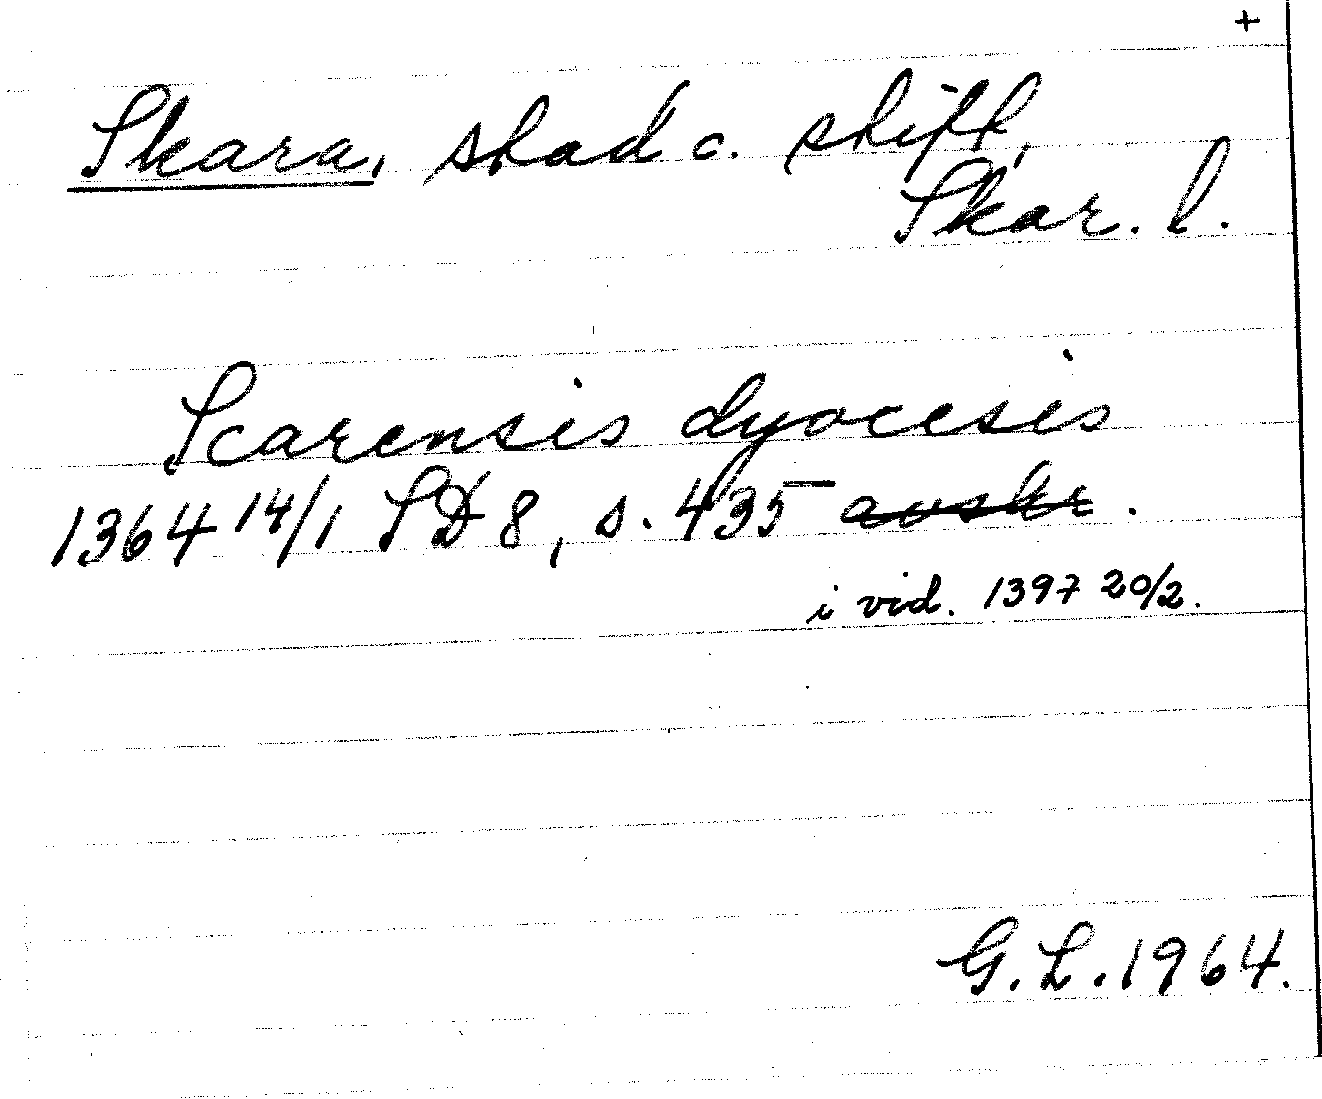 +
Skara, stad o. stift,
Skar. l.
Scarensis dyocesis
1364 14/1 SD 8, s. 435 avskr.
i vid. 1397 20/2.
G. L. 1964.